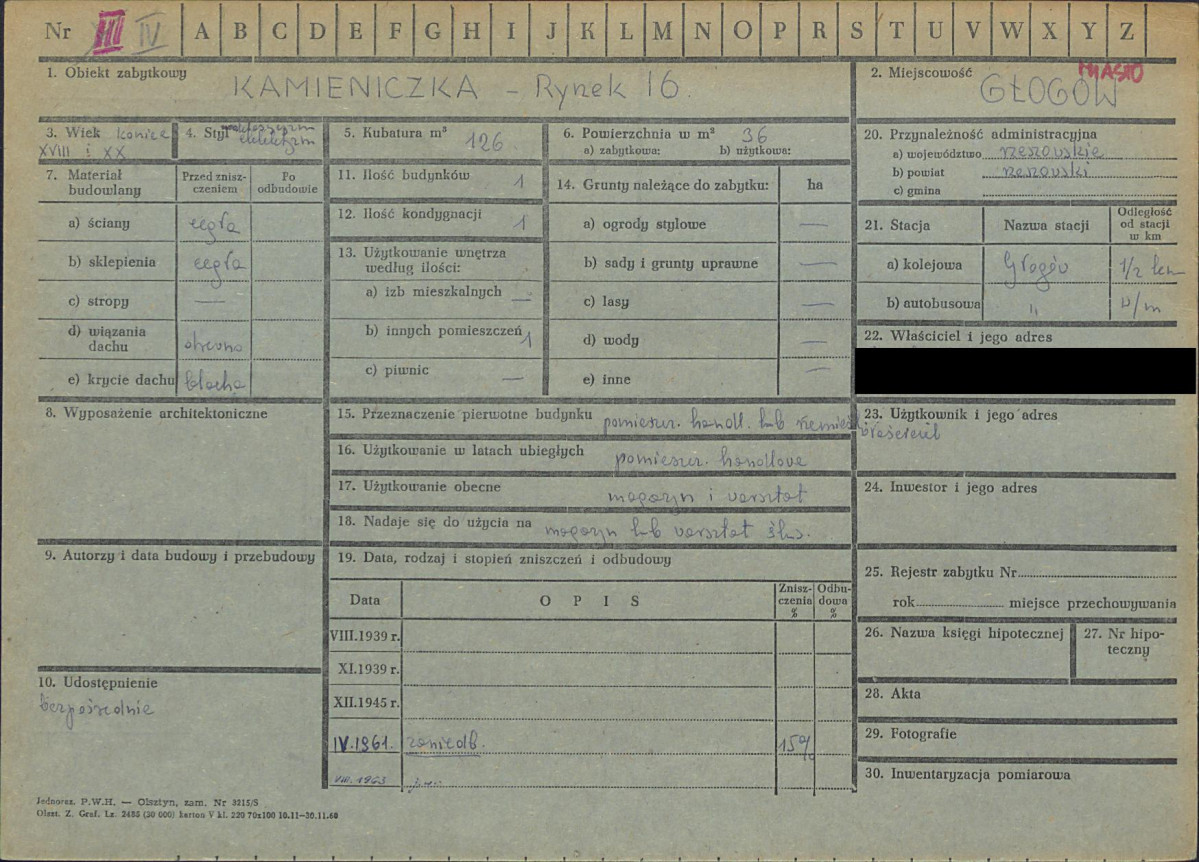 Nr III IV A B C D E F G H I J K L M N O P R S T U V W X Y Z
1. Obiekt zabytkowy
KAMIENICZKA – Rynek 16.
2. Miejscowość
MIASTO
GŁOGÓW
3. Wiek koniec
XVIII i XX
4. Styl
eklektyzm
5. Kubatura m³ 126
6. Powierzchnia w m² 36
a) zabytkowa: b) użytkowa:
7. Materiał budowlany
Przed znisz-
czeniem
Po
odbudowie
a) ściany cegła
b) sklepienia cegła
c) stropy —
d) wiązania
dachu drewno
e) krycie dachu blacha
8. Wyposażenie architektoniczne
9. Autorzy i data budowy i przebudowy
10. Udostępnienie
bezpośrednie
11. Ilość budynków 1
12. Ilość kondygnacji 1
13. Użytkowanie wnętrza
według ilości:
a) izb mieszkalnych —
b) innych pomieszczeń 1
c) piwnic —
14. Grunty należące do zabytku: ha
a) ogrody stylowe —
b) sady i grunty uprawne —
c) lasy —
d) wody —
e) inne —
15. Przeznaczenie pierwotne budynku pomieszcz. handl. lub
16. Użytkowanie w latach ubiegłych pomieszcz. handlowe
17. Użytkowanie obecne magazyn i warsztat
18. Nadaje się do użycia na magazyn lub warsztat ślus.
19. Data, rodzaj i stopień zniszczeń i odbudowy
Data OPIS
Znisz-
czenia
%
Odbu-
dowa
%
VIII.1939 r.
XI.1939 r.
XII.1945 r.
IV.1961. zaniedb. 15%
VIII. 1963
20. Przynależność administracyjna
a) województwo rzeszowskie
b) powiat rzeszowski
c) gmina
21. Stacja Nazwa stacji
Odległość
od stacji
w km
a) kolejowa Głogów 1/2 km
b) autobusowa " w/m
22. Właściciel i jego adres
23. Użytkownik i jego adres
24. Inwestor i jego adres
25. Rejestr zabytku Nr
rok miejsce przechowywania
26. Nazwa księgi hipotecznej
27. Nr hipo-
teczny
28. Akta
29. Fotografie
30. Inwentaryzacja pomiarowa
Jednoraz. P.W.H. — Olsztyn, zam. Nr 3215/S
Olszt. Z. Graf. Lz. 2485 (30 000) karton V kl. 220 70x100 10.11–30.11.60